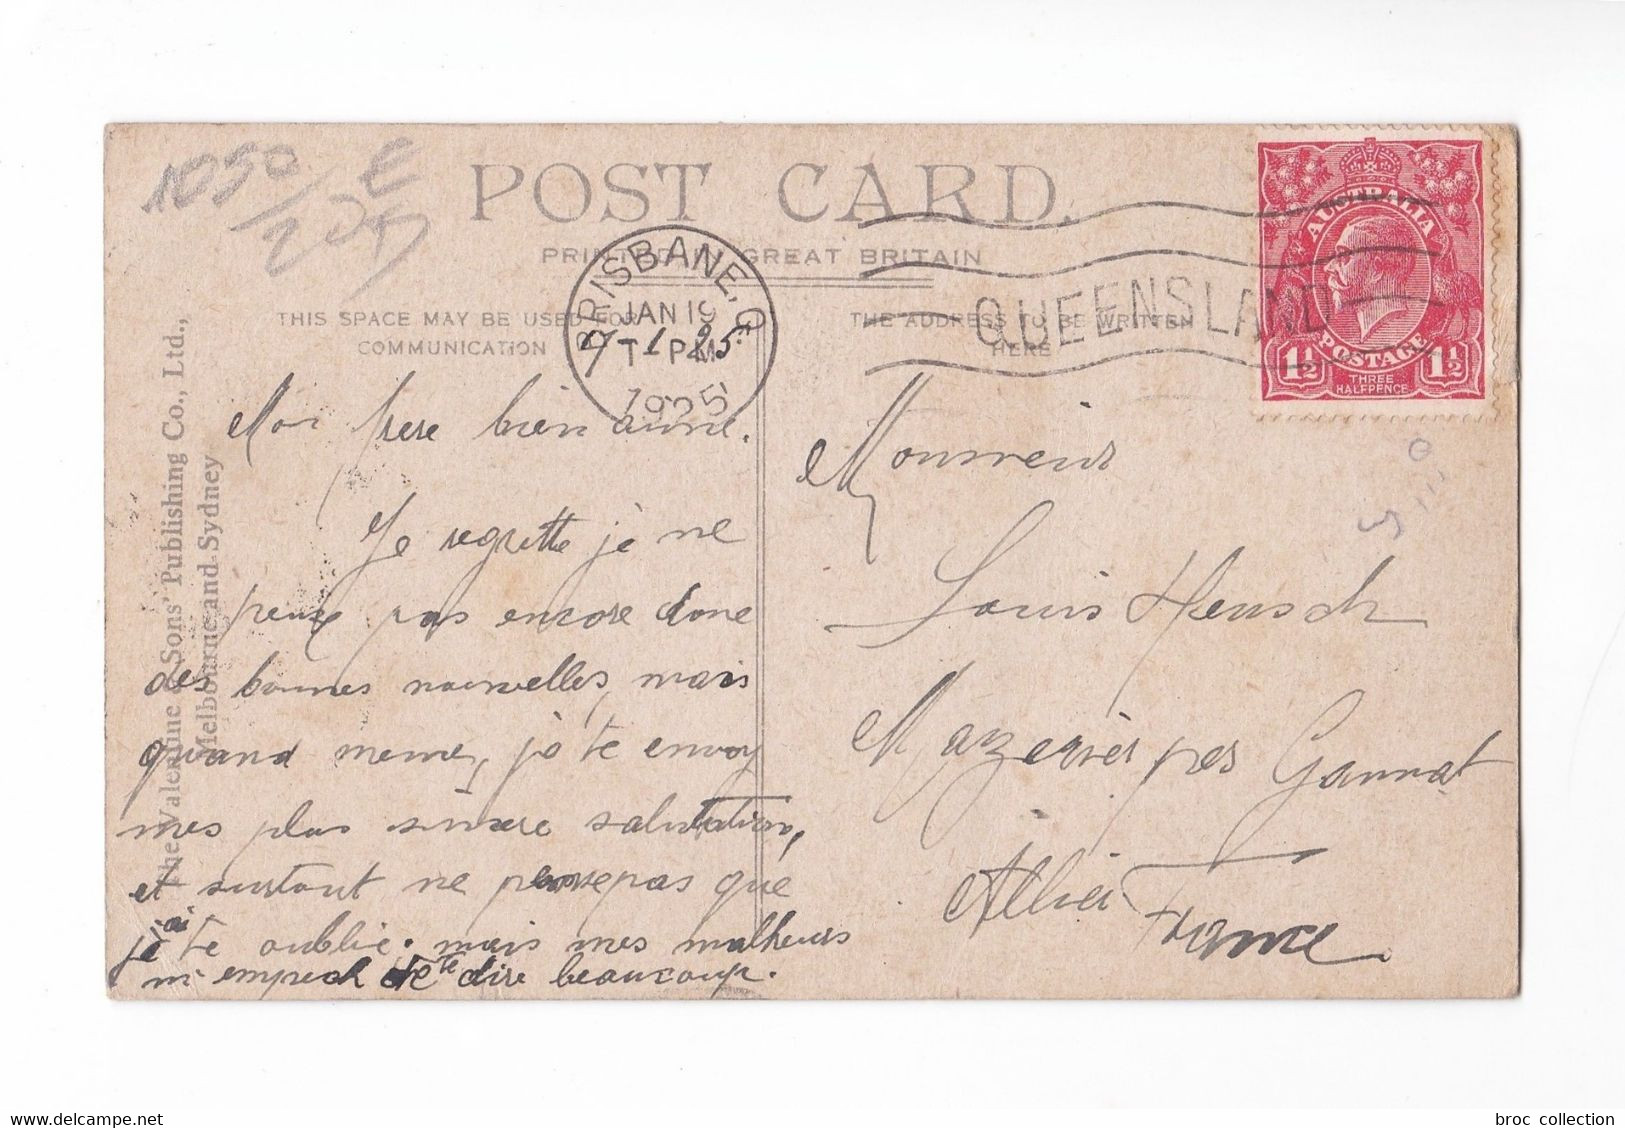 1050
POST CARD.
PRINTED IN GREAT BRITAIN
BRISBANE, Q.
JAN 19
PM
1925
QUEENSLAND
AUSTRALIA
POSTAGE
1½ THREE HALFPENCE 1½
THIS SPACE MAY BE USED FOR
COMMUNICATION
THE ADDRESS TO BE WRITTEN
HERE
The Valentine & Sons' Publishing Co., Ltd.,
Melbourne and Sydney
7-1-25
Mon frere bien aimé.
Je regrette je ne
peux pas encore done
des bonnes nouvelles, mais
quand meme, je te envoy
mes plus sincere salutation,
et surtout ne pense pas que
je ai te oublie. mais mes malheurs
m'empech de te dire beaucoup.
Monsieur
Louis Hensch
Mazerier pres Gannat
Allier
France
broc collection